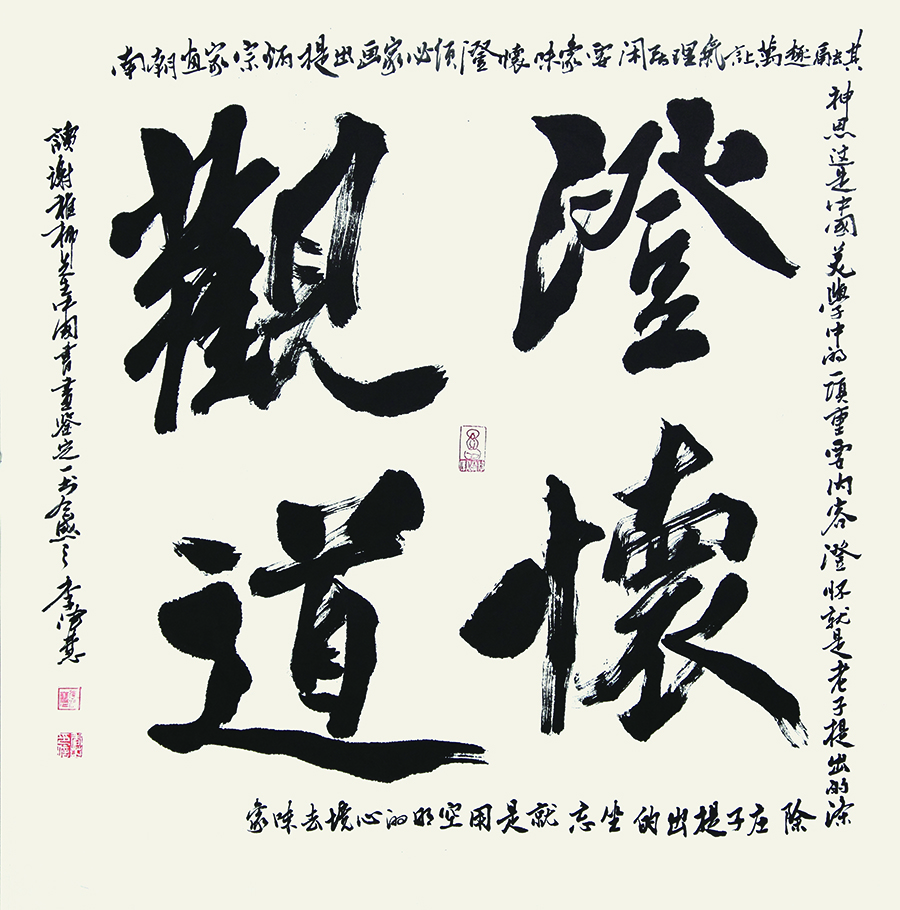 澄懷
觀道
南朝畫家宗炳提出画家必须澄懷味象要闲居理氣让萬趣融其
神思这是中國美學中的一項重要内容澄怀就是老子提出的滌
除庄子提出的坐忘就是用空明的心境去味象
讀谢稚柳先生中国書畫鉴定一书有感 李